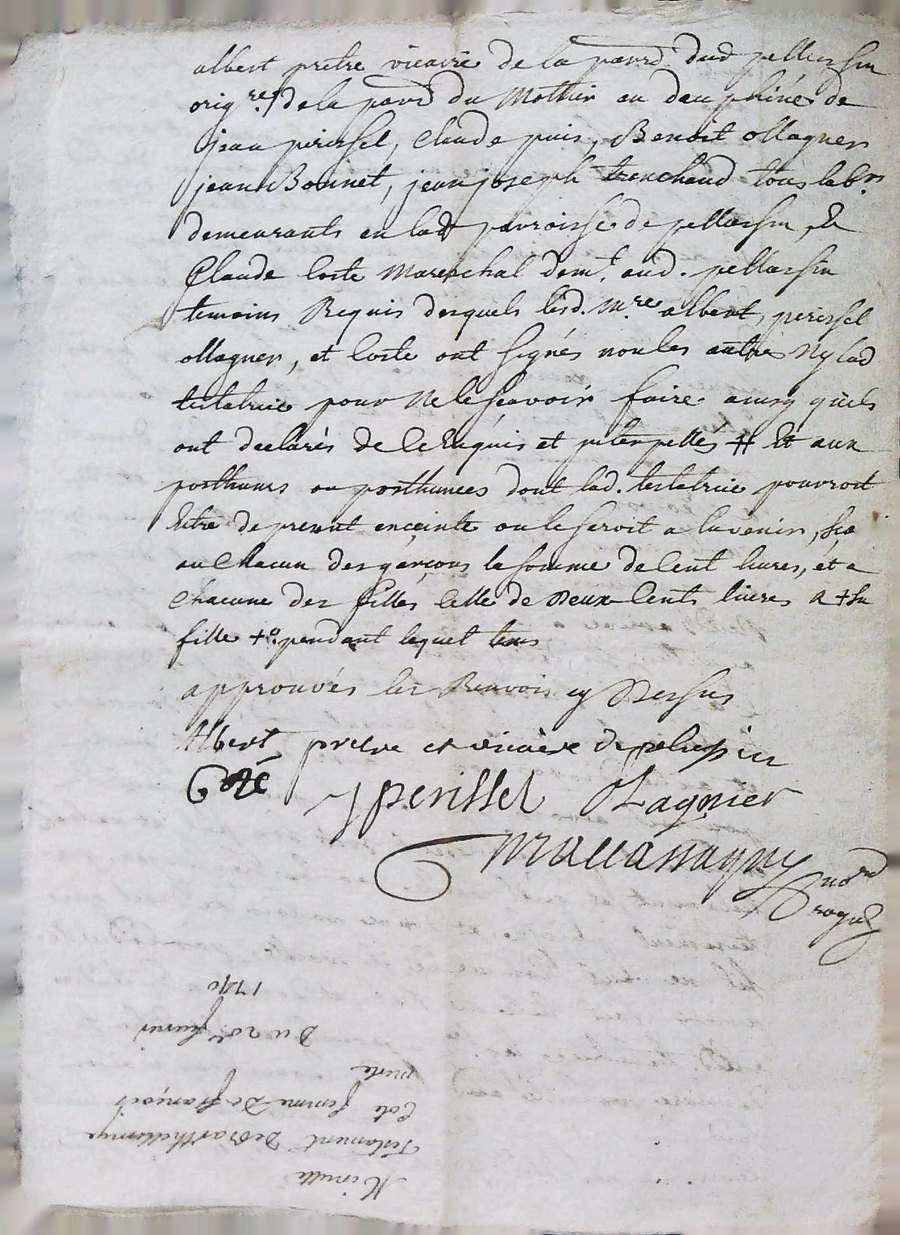 albert prêtre vicaire de la parr. dud pellussin
orig.re de la parr. du Mothier en dauphiné de
jean perissel, Claude puis, Benoit ollagner
jean Bonnet, jean joseph trenchand tous labrs
demeurants en lad parroisse de pellussin, et
Claude Coste Marechal demt. aud. pellussin
temoins Requis desquels lesd. mre albert, perissel
ollagner, et Coste ont signés non les autres Ny lad
testatrice pour Ne le sçavoir faire ainsy qu'ils
ont declarés de ce Enquis et interpellés # Et aux
posthumes ou posthumees dont lad. testatrice pourroit
Etre de present enceinte ou le seroit a lavenir, sça
a un Chacun des garçons la somme de Cent livres, et a
Chacune des filles Celle de Deux Cents livres a + sa
fille +o pendant lequel tems
approuvés les Renvois cy Dessus
Albert prêtre et vicaire de pelussin
Coste J perissel Olagnier
nore
royal
Minutte
Testament De Barthellemye
Cote femme De françois
Du 20e. fevrier
1740